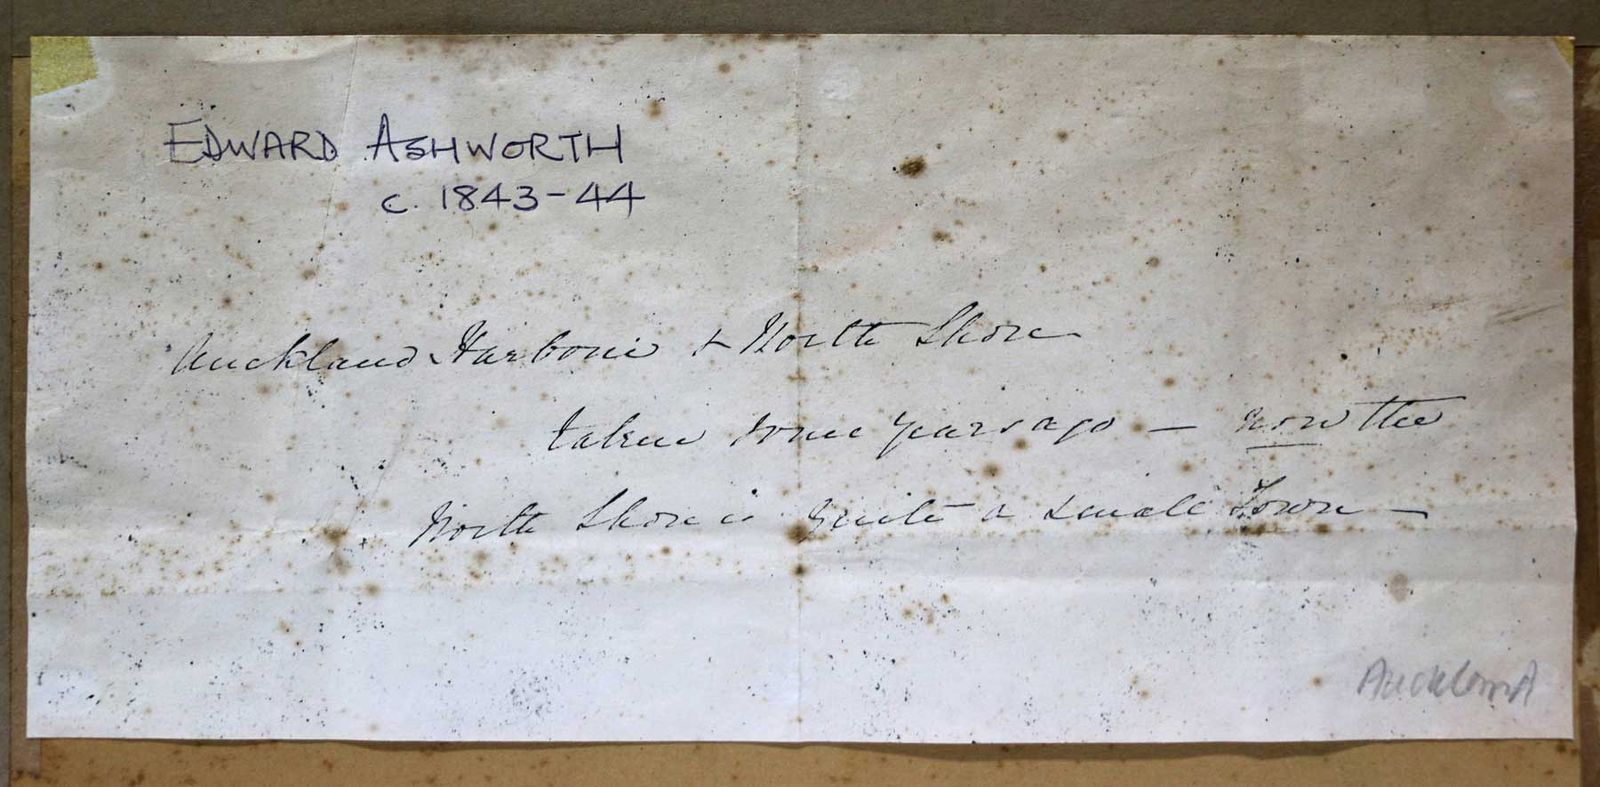 EDWARD ASHWORTH
c. 1843-44
Auckland Harbour & North Shore
taken some years ago — now the
North Shore is quite a small Town —
Auckland